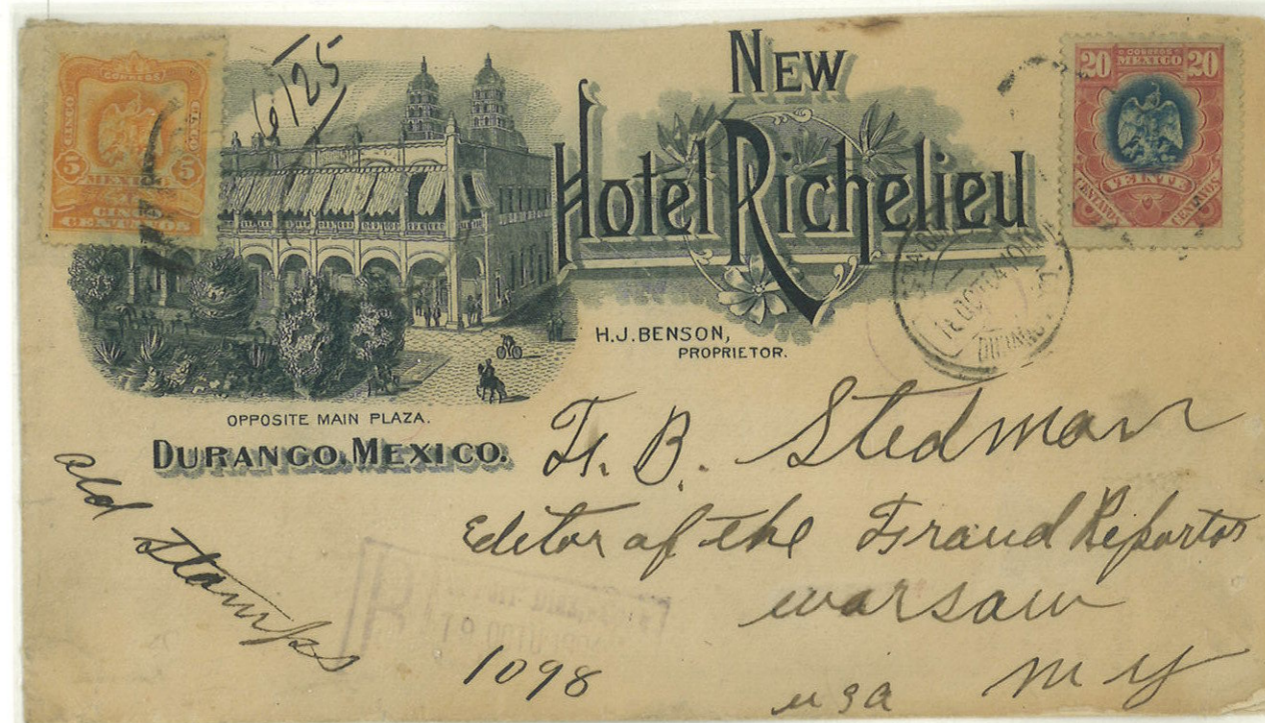 CORREOS
CINCO
CINCO
5 5
MEXICO
CINCO
CENTAVOS
6125
NEW
Hotel Richelieu
CORREOS
MEXICO
20 20
VEINTE
CENTAVOS CENTAVOS
H.J. BENSON,
PROPRIETOR.
OCT
OPPOSITE MAIN PLAZA.
DURANGO, MEXICO.
old stamps
Fr. B. Stedman
Editor of the Fraud Reporter
Warsaw
N Y
usa
1098
R